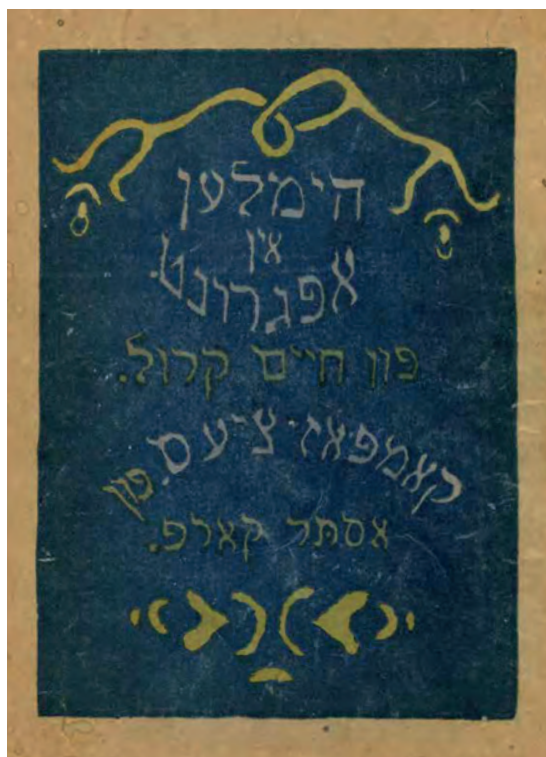 הימלען
אין
אפגרונט.
פון חיים קרול.
קאמפאזיציעס. פון
אסתר קארפ.